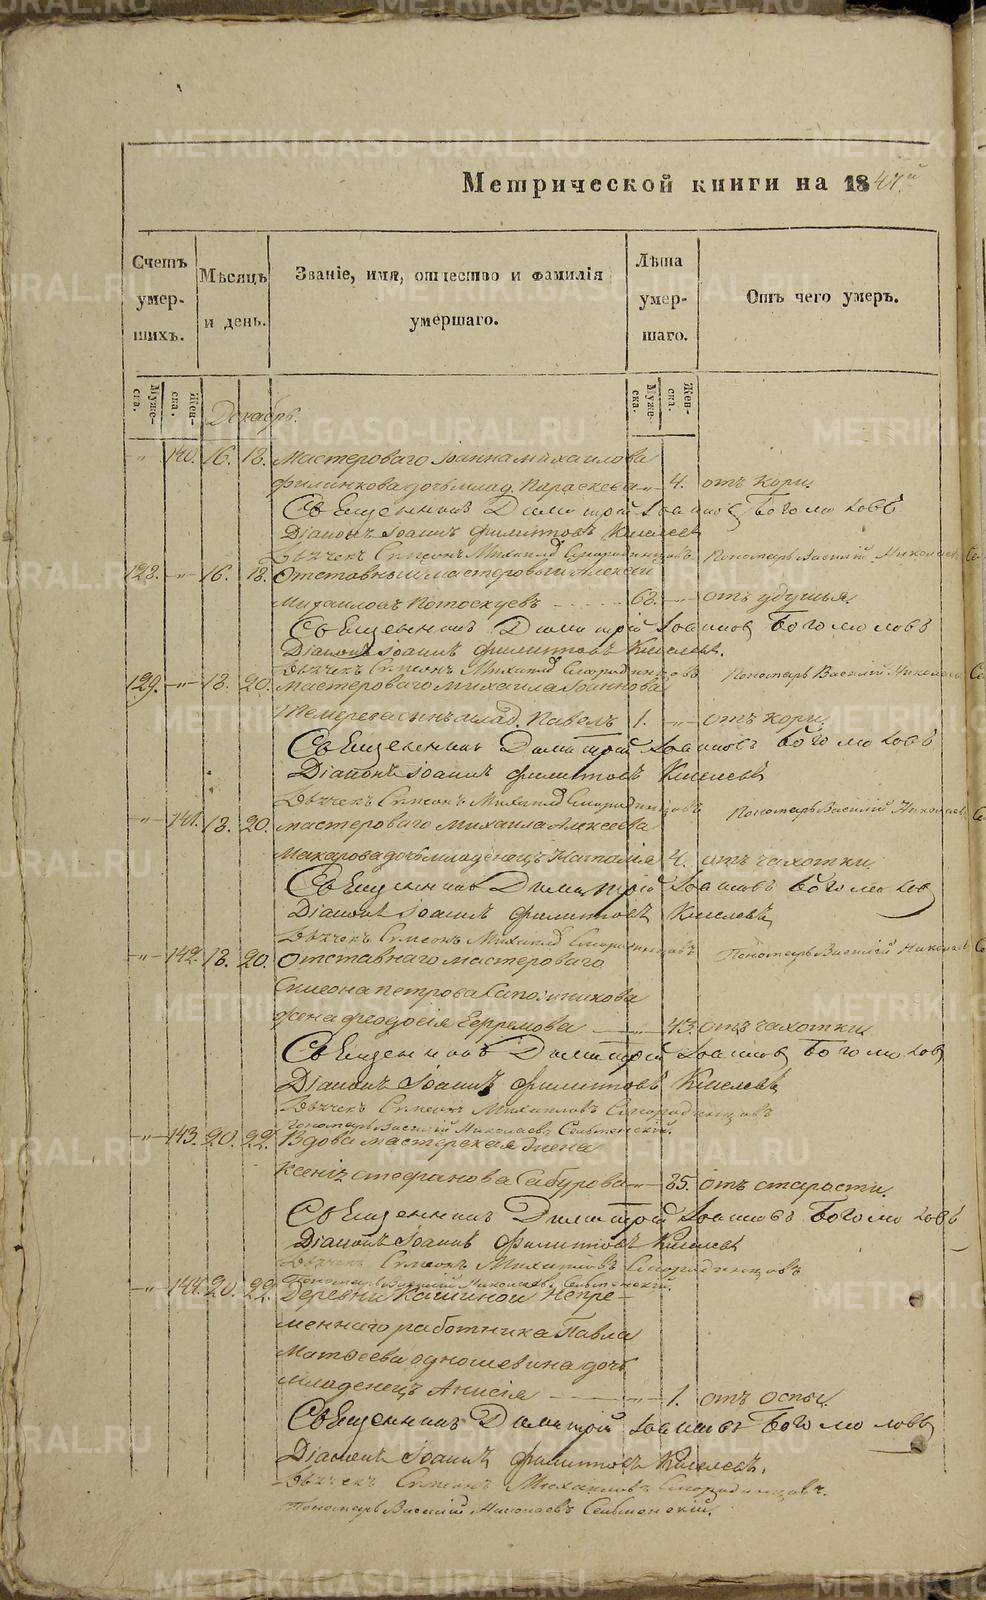 Метрической книги на 1847й
Счетъ умер- шихъ.
Мѣсяцъ и день.
Званіе, имя, отчество и фамилія умершаго.
Лѣта умер- шаго.
Отъ чего умеръ.
Муже- ска.
Жен- ска.
Муже- ска.
Жен- ска.
Декабрь.
" 140. 16. 18. Мастероваго Іоанна Михаилова
Филинкова дочь млад. Параскева " 4. отъ кори.
Священникъ Димитрій Іоанновъ Боголюбовъ
Діаконъ Іоаннъ Филипповъ Киселевъ
Дьячекъ Симеонъ Михаилов Смородинцовъ. Пономарь Василій Николаевъ
128. " 16. 18. Отставный мастеровый Алексѣй
Михаиловъ Потоскуевъ 62. " отъ удушья.
Священникъ Димитрій Іоанновъ Боголюбовъ
Діаконъ Іоаннъ Филипповъ Киселевъ.
Дьячекъ Симеонъ Михаилов Смородинцовъ Пономарь Василій Николаевъ
129. " 18. 20. Мастероваго Михаила Іоаннова
сынъ млад. Павелъ 1. " отъ кори.
Священникъ Димитрій Іоанновъ Боголюбовъ
Діаконъ Іоаннъ Филипповъ Киселевъ
Дьячекъ Симеонъ Михаилов Смородинцовъ Пономарь Василій Николаевъ
" 141. 18. 20. Мастероваго Михаила Алексѣева
Макарова дочь младенецъ Наталія 4. отъ чахотки.
Священникъ Димитрій Іоанновъ Боголюбов
Діаконъ Іоаннъ Филипповъ Киселевъ
Дьячекъ Симеонъ Михаилов Смородинцовъ Пономарь Василій Николаевъ
" 142. 18. 20. Отставнаго мастероваго
Симеона Петрова Сапожникова
жена Феодосія Ефремова " 43. отъ чахотки
Священникъ Димитрій Іоаннов Боголюбов
Діаконъ Іоаннъ Филипповъ Киселевъ
Дьячекъ Симеонъ Михаиловъ Смородинцовъ
Пономарь Василій Николаевъ Сельменскій.
" 143. 20. 22. Вдова мастерская жена
Ксенія Стефанова Сабурова " 85. отъ старости.
Священникъ Димитрій Іоанновъ Боголюбовъ
Діаконъ Іоаннъ Филипповъ Киселевъ
Дьячекъ Симеонъ Михаиловъ Смородинцовъ
Пономарь Василій Николаевъ Сельменскій.
" 144. 20. 22. Деревни Кашиной Непре-
меннаго работника Павла
Матфеева Одношевина дочь
младенецъ Анисія " 1. отъ оспы.
Священникъ Димитрій Іоанновъ Боголюбовъ
Діаконъ Іоаннъ Филипповъ Киселевъ.
Дьячекъ Симеонъ Михаиловъ Смородинцовъ.
Пономарь Василій Николаевъ Сельменскій.
METRIKI.GASO-URAL.RU